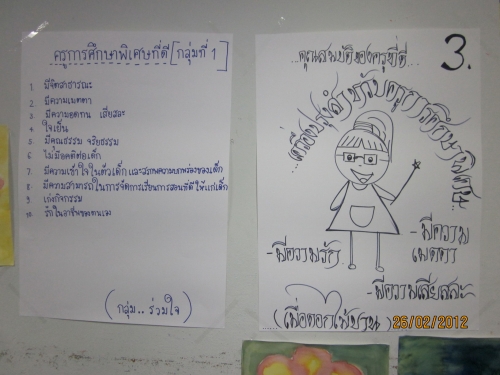 ครูการศึกษาพิเศษที่ดี [กลุ่มที่ 1]
1 มีจิตสาธารณะ
2. มีความเมตตา
3. มีความอดทน เสียสละ
4. ใจเย็น
5. มีคุณธรรม จริยธรรม
6 ไม่มีอคติต่อเด็ก
7. มีความเข้าใจในตัวเด็ก และสภาพความบกพร่องของเด็ก
8 มีความสามารถในการจัดการเรียนการสอนที่ดีให้แก่เด็ก
9 เก่งกิจกรรม
10. รักในอาชีพของตนเอง
(กลุ่ม.. ร่วมใจ)
3.
...คุณสมบัติของครูที่ดี...
สำหรับครูการศึกษาพิเศษ...
-มีความรัก
-มีความ
เมตตา
-มีความเสียสละ
(เพื่อดอกไม้บาน)
26/02/2012